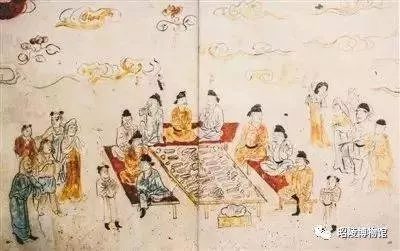 昭陵博物馆